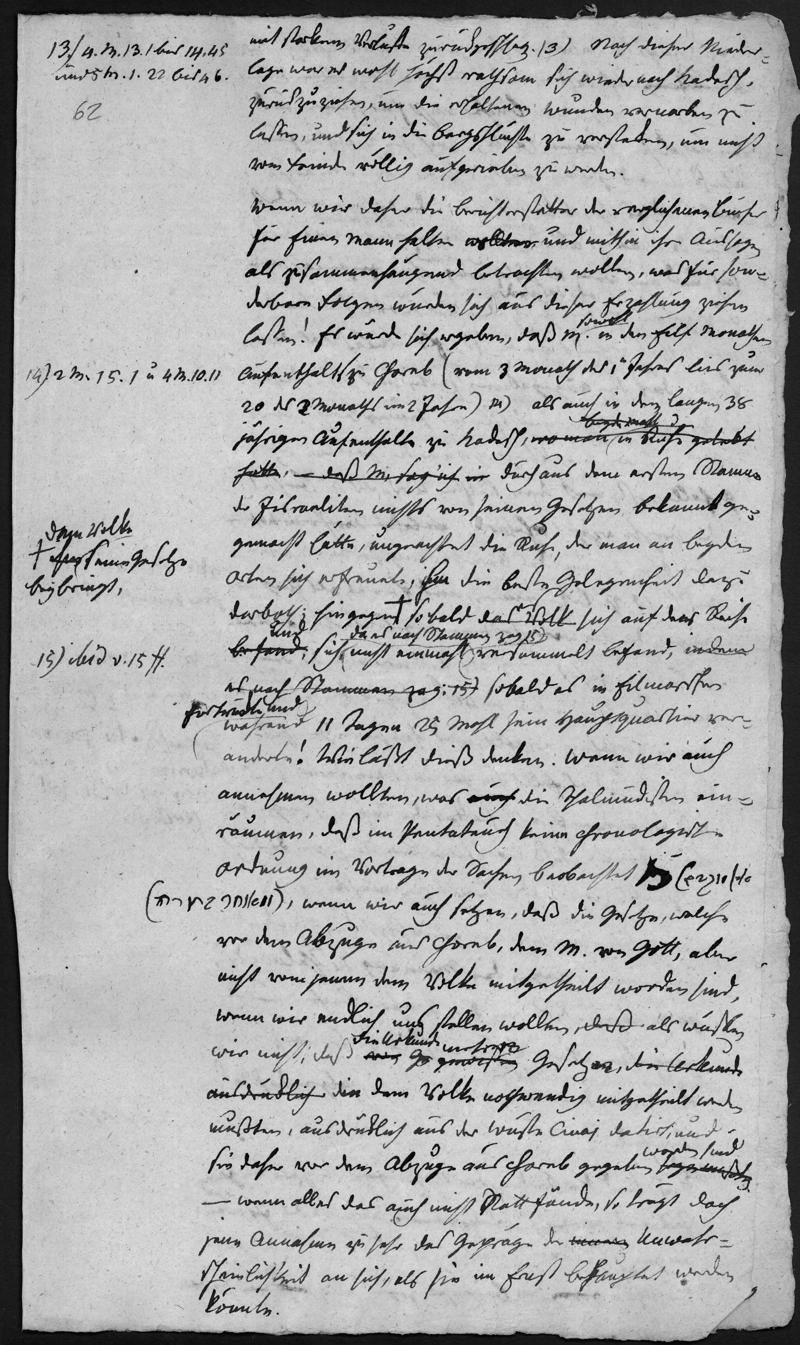 13) 4. M. 13. 1 bis 14. 45
und 5 M. 1. 22 bis 46.
62
mit starkem Verluste zurückgeschlag. 13) Nach dieser Nieder-
lage war es wohl höchst rathsam sich wieder nach Kadesch,
zurückzuziehen, um die erhaltenen Wunden vernarben zu
lassen, und sich in die Bergschluchte zu verstecken, um nicht
vom Feinde völlig aufgerieben zu werden.
Wenn wir daher die Berichterstatter der verglichenen Bücher
für Einen Mann halten wollten und mithin ihre Aussagen
als zusammenhängend betrachten wollen, was für son-
derbare Folgen würden sich aus dieser Erzählung ziehen
lassen! Es würde sich ergeben, daß M. sowohl in den Eilf Monathen
14) 2 M. 15. 1 u 4 M. 10. 11
Aufenthalts zu Choreb (vom 3 Monath des 1 Jahres bis zum
20 des 2 Monaths im 2 Jahre) 14) als auch in dem langen 38
jährigen Aufenthalte zu Kadesch, wo man in Ruhe gelebt
hatte, — daß M. sag' ich durchaus dem ersten Stamme
der Israeliten nichts von seinen Gesetzen bekannt ge-
gemacht hätte, ungeachtet die Ruhe, der man an beyden
Orten sich erfreute, ihm die beste Gelegenheit dazu
darboth; hingegen † sobald das Volk sich auf der Reise
dem Volke
† seine Gesetze
beybringt,
befand, und sich nicht einmahl da es nach Stämmen zog 15) versammelt befand, indem
15) ibid v. 15 ff.
es nach Stämmen zog; 15) sobald es in Eilmärschen
fortrückte und
während 11 Tagen 25 Mahl sein Hauptquartier ver-
änderte! Wie läßt dieß denken. Wenn wir auch
annehmen wollten, was auch die Thalmudisten ein-
räumen, daß im Pentateuch keine chronologische
Ordnung im Vortrage der Sachen beobachtet ist (אין מוקדם
ומאוחר בתורה), wenn wir auch setzen, daß die Gesetze, welche
vor dem Abzuge aus Choreb, dem M. von Gott, aber
nicht von jenem dem Volke mitgetheilt worden sind,
wenn wir endlich uns stellen wollten, als wüßten
wir nicht, daß die Urkunde mehrere Gesetze, die Urkunde
ausdrücklich die dem Volke nothwendig mitgetheilt werden
mußten, ausdrücklich aus der Wüste Sinai datirt, und
sie daher vor dem Abzuge aus Choreb gegeben worden sind
— wenn alles das auch nicht Statt fände, so trägt doch
jene Annahme zu sehr das Gepräge der Unwahr-
scheinlichkeit an sich, als sie im Ernst behauptet werden
könnte.